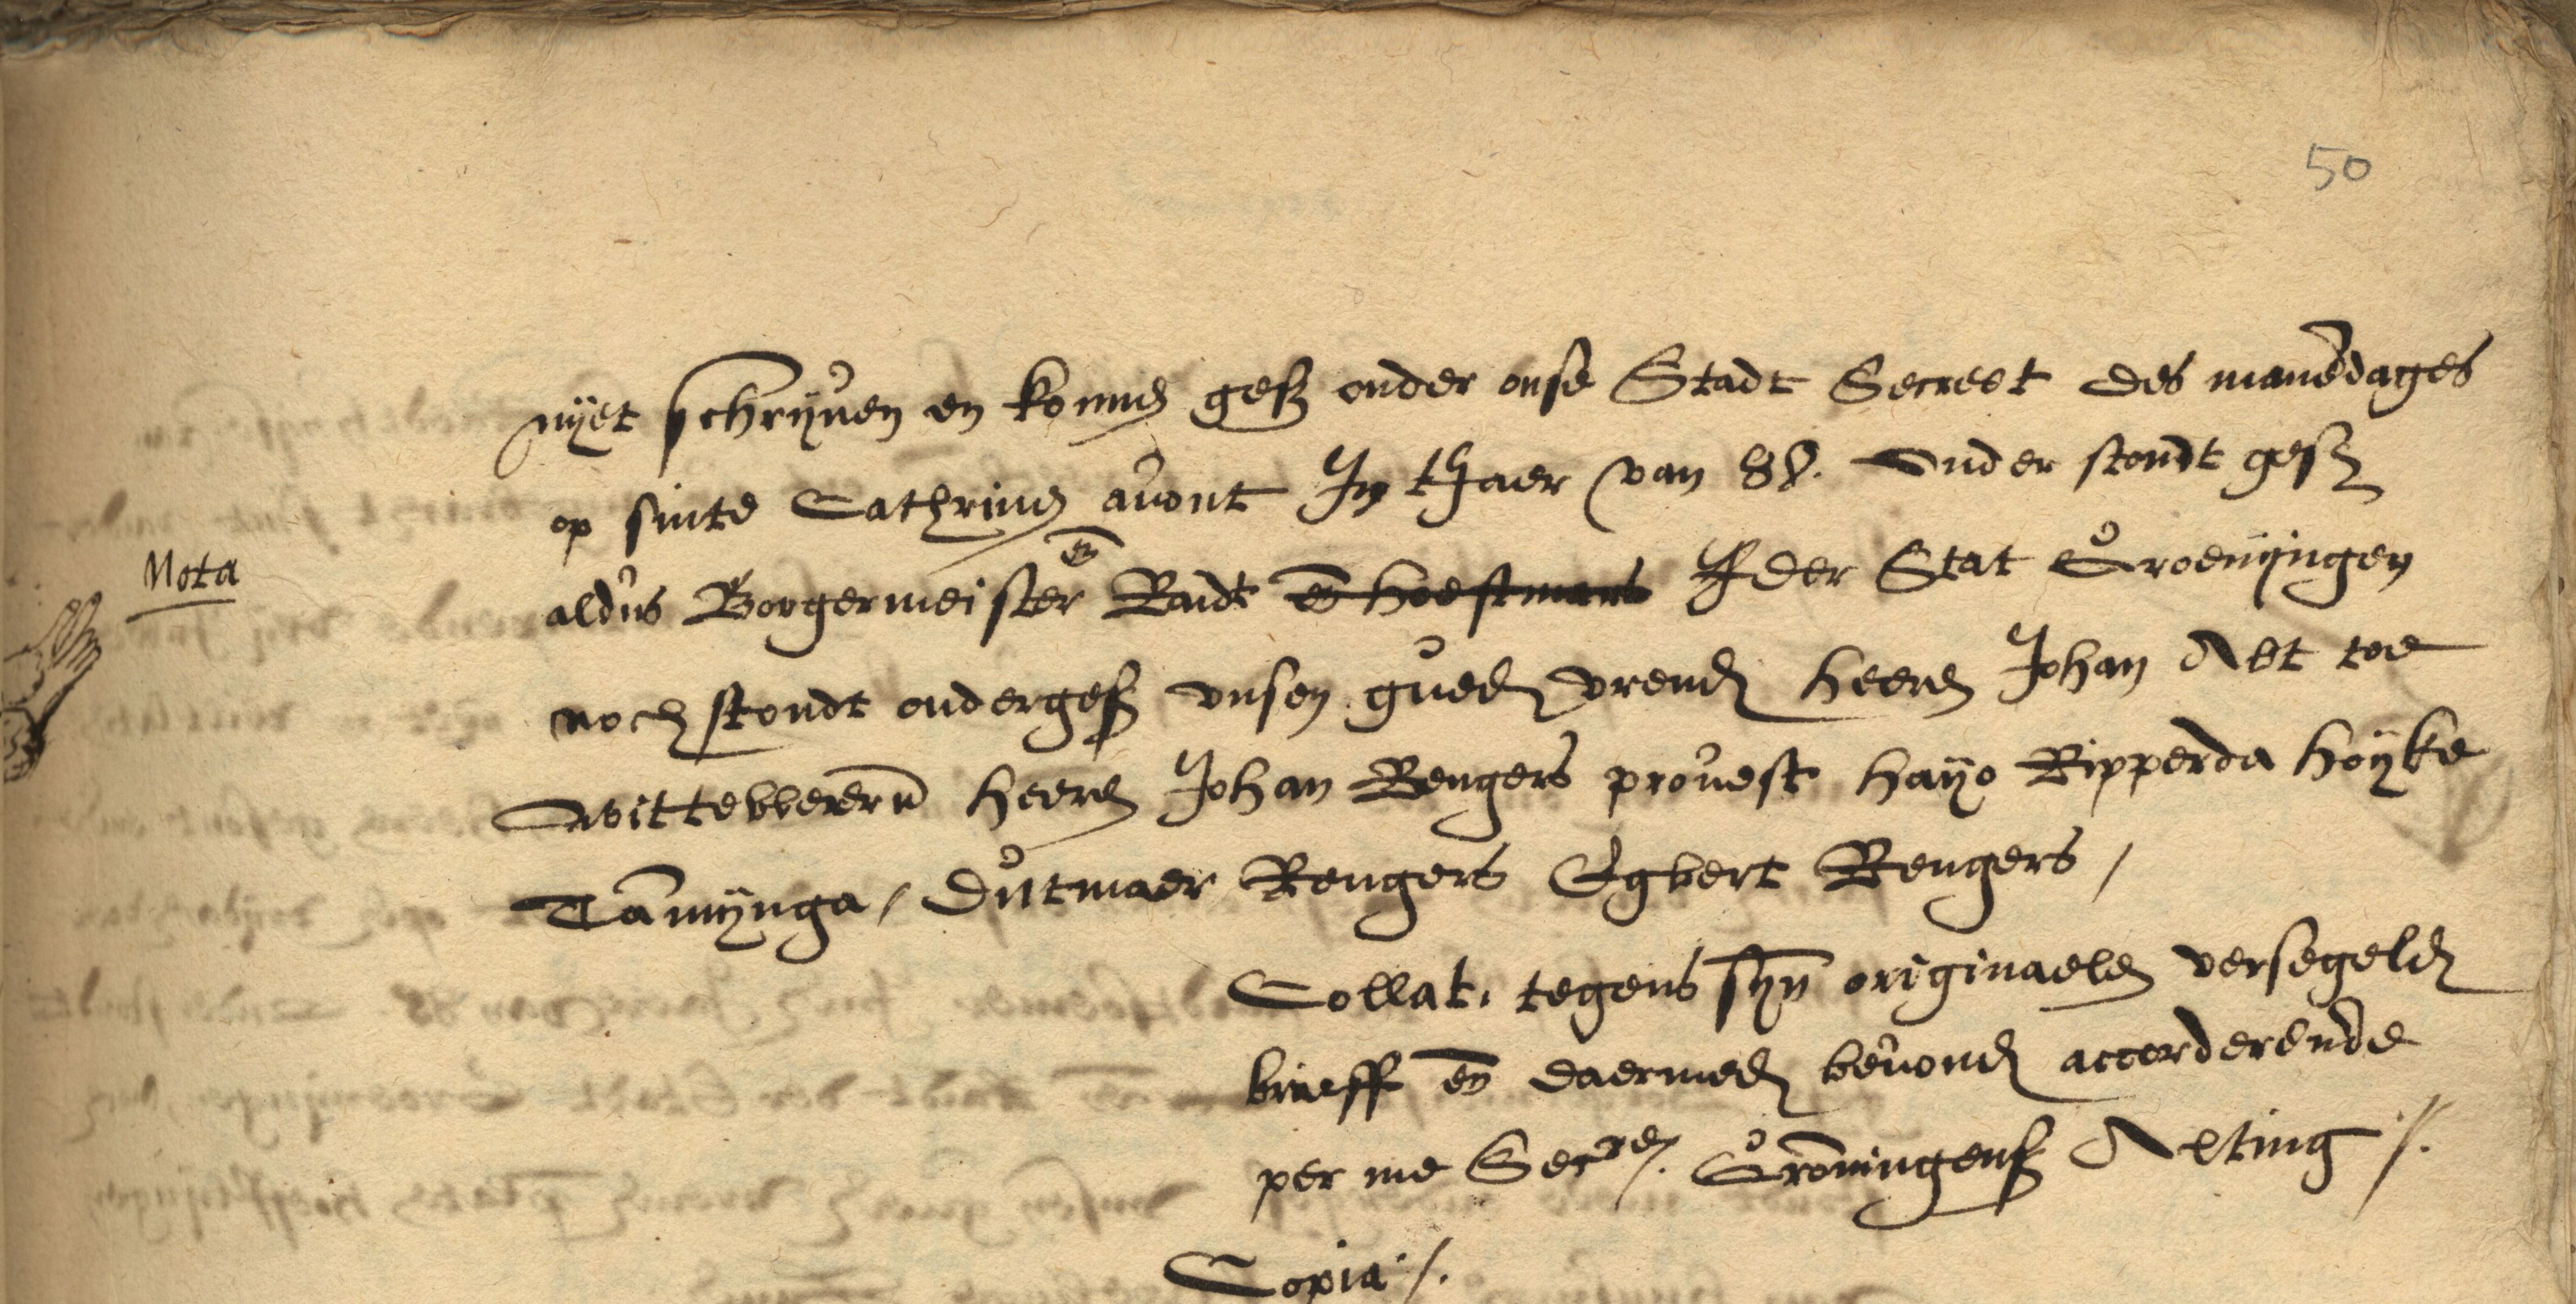 50
nyet schryuen en konnen gesz onder onse Stadt Secreet des manendages
op sinte Cathrinen auont In tJaer van 88. Onder stondt gesz
Nota
aldus Borgermeister en Raidt en hoeftmans Jder Stat Groenyngen
noch stondt ondergesz vnsen gueden vrenden heeren Johan Abt toe
Wittewerum heeren Johan Rengers prouest Hayo Ripperda Hoyke
Tamynga / Dutmaer Rengers Egbert Rengers /
Collat. tegens syn originaelen versegelden
brieff en daermede beuonden accorderende
per me Secre. Groningens Alting /.
Copia /.